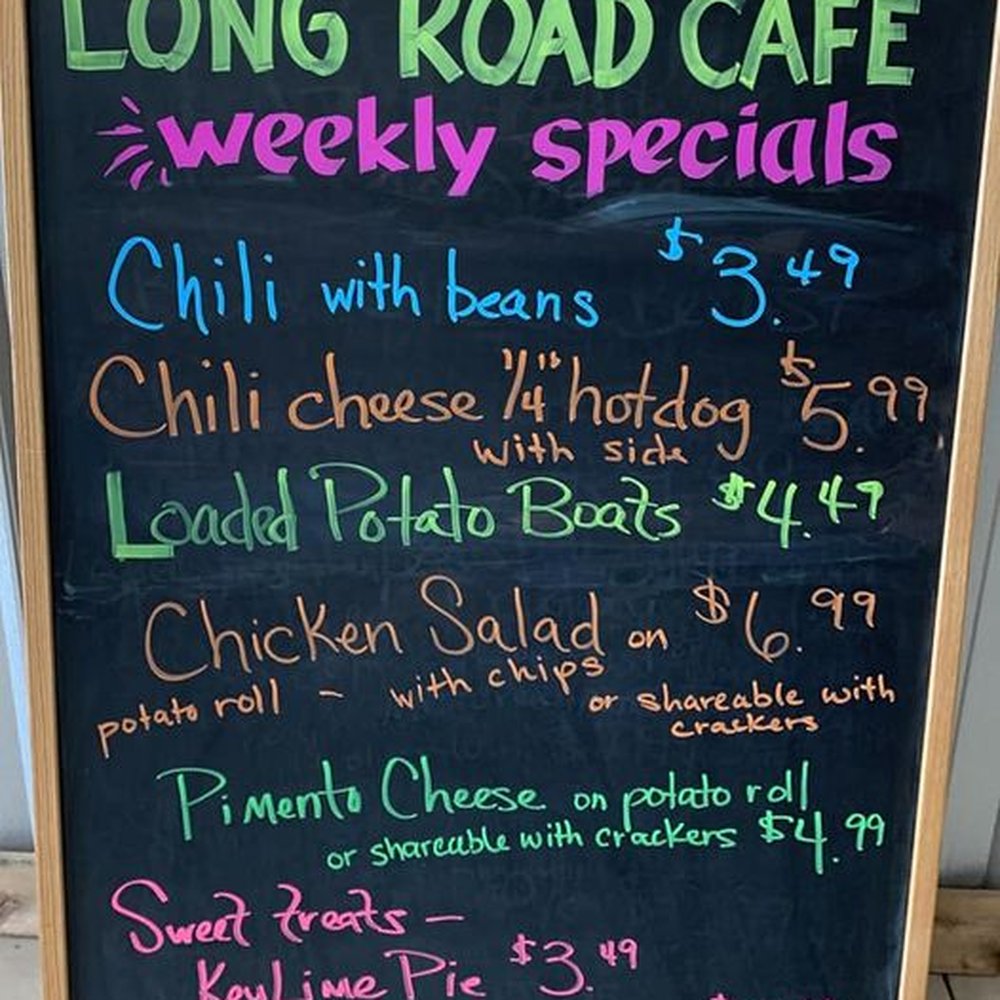 LONG ROAD CAFE
weekly specials
Chili with beans $3.49
Chili cheese 1/4" hotdog $5.99
with side
Loaded Potato Boats $4.49
Chicken Salad on $6.99
potato roll - with chips or shareable with
crackers
Pimento Cheese on potato roll
or shareable with crackers $4.99
Sweet treats -
Key Lime Pie $3.49